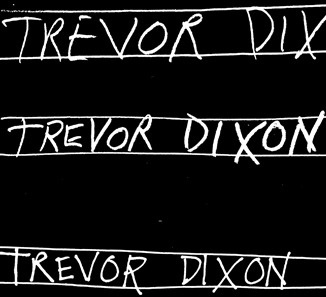 TREVOR DIX
TREVOR DIXON
TREVOR DIXON